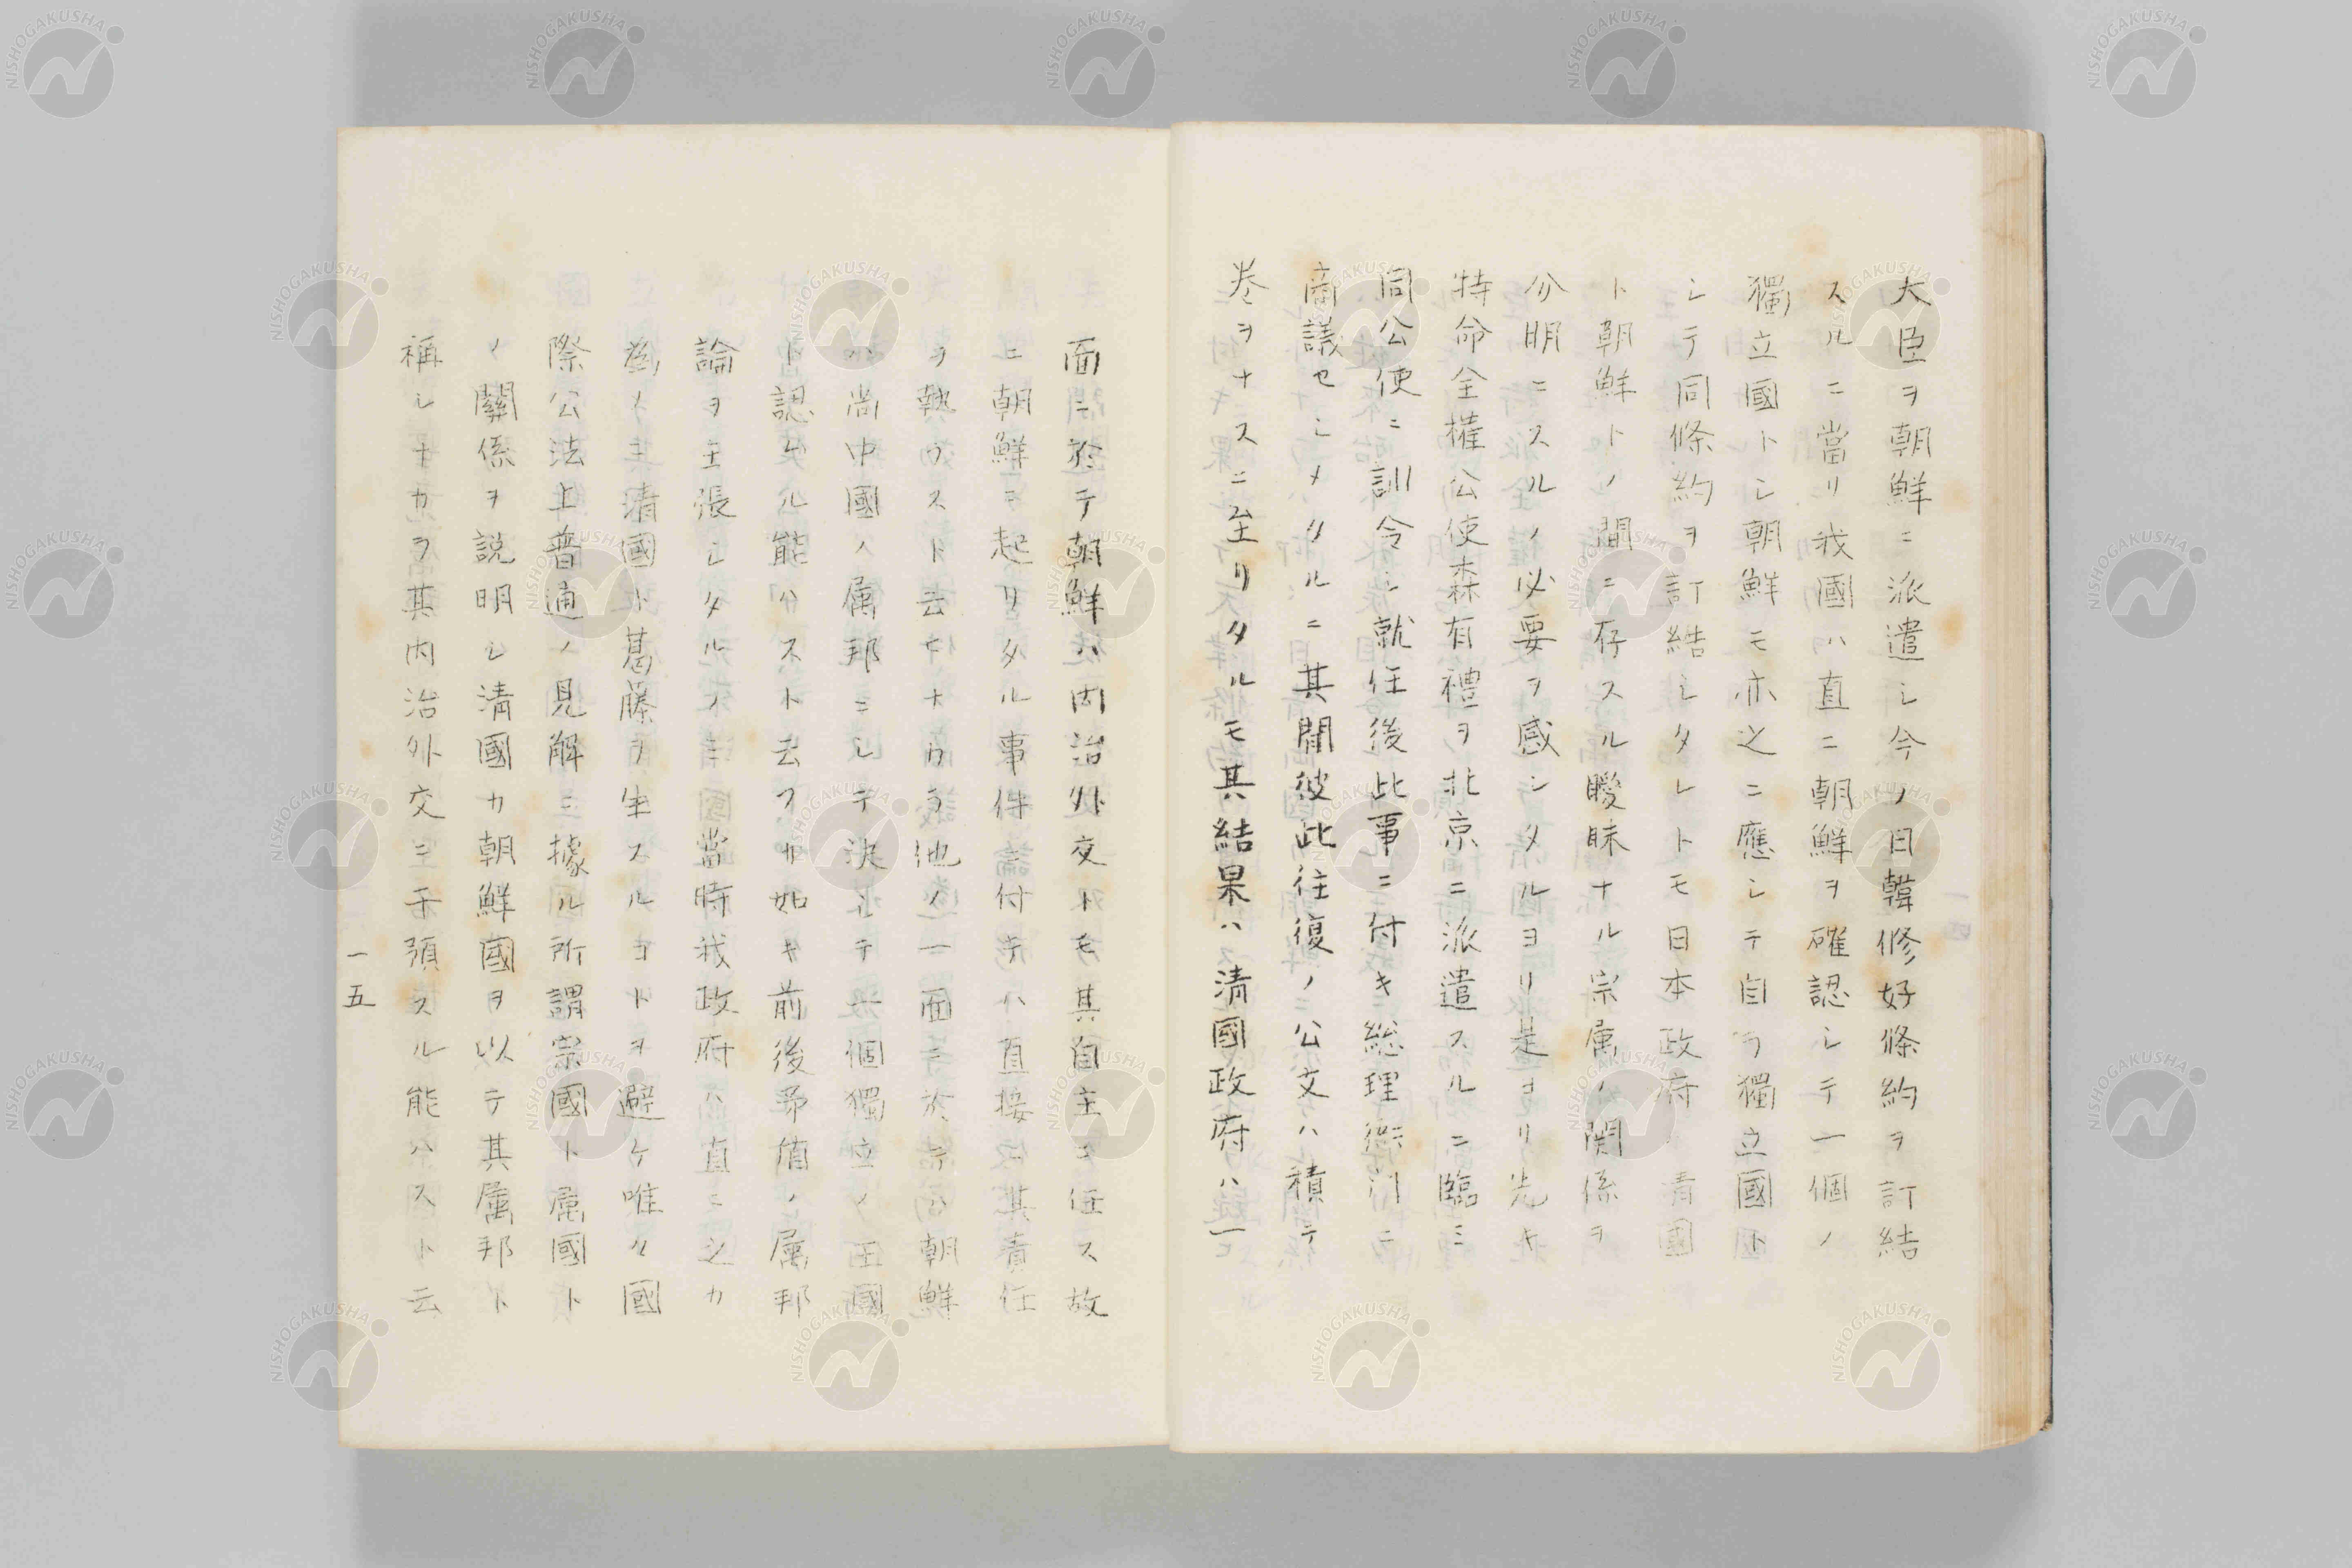 大臣ヲ朝鮮ニ派遣シ今ノ日韓修好條約ヲ訂結
スルニ當リ我國ハ直ニ朝鮮ヲ確認シテ一個ノ
獨立國トシ朝鮮モ亦之ニ應シテ自ラ獨立國ト
シテ同條約ヲ訂結シタレトモ日本政府ハ清國
ト朝鮮トノ間ニ存スル曖昧ナル宗属ノ関係ヲ
分明ニスルノ必要ヲ感シタルヨリ是ヨリ先キ
特命全権公使森有禮ヲ北京ニ派遣スルニ臨ミ
同公使ニ訓令シ就任後此事ニ付キ総理衙門ニ
商議セシメタルニ其間彼此往復ノ公文ハ積テ
巻ヲナスニ至リタルモ其結果ハ清國政府ハ一
面ニ於テ朝鮮ハ内治外交トモ其自主ニ任ス故
ニ朝鮮ニ起リタル事件ニ付テハ直接ニ其責任
ヲ執ラスト云ヒナカラ他ノ一面ニ於テハ朝鮮
ハ尚中國ノ属邦ニシテ決シテ一個獨立ノ王國
ト認ムル能ハスト云フカ如キ前後矛盾ノ属邦
論ヲ主張シタルノミ當時我政府ハ直ニ之カ
為メ其清國ト葛藤ヲ生スルコトヲ避ケ唯タ國
際公法上普通ノ見解ニ據ル所謂宗國ト属國ト
ノ關係ヲ説明シ清國カ朝鮮國ヲ以テ其属邦ト
稱シナカラ其内治外交ニ干預スル能ハスト云
一五
NISHOGAKUSHA